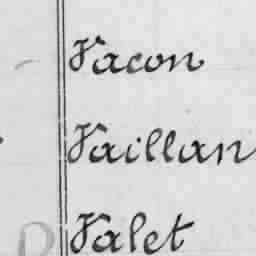 Vacon
Vaillan
Valet